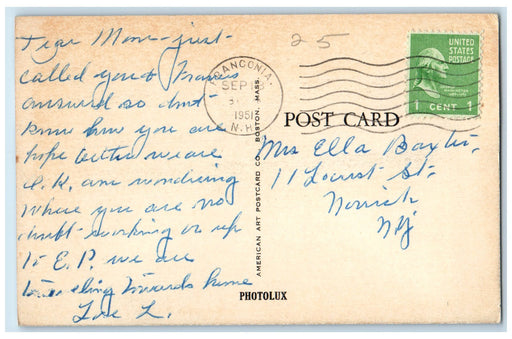 Dear Mom - just
called you & Francis
answered so dont
know how you are
hope better we are
O.K. am wondering
where you are no
doubt working or up
to E.P. we are
traveling towards home
Love L.
25
FRANCONIA,
SEP
1951
N.H.
UNITED
STATES
POSTAGE
1 CENT 1
POST CARD
Mrs Ella Baxter
11 Locust St.
AMERICAN ART POSTCARD CO. BOSTON, MASS.
PHOTOLUX